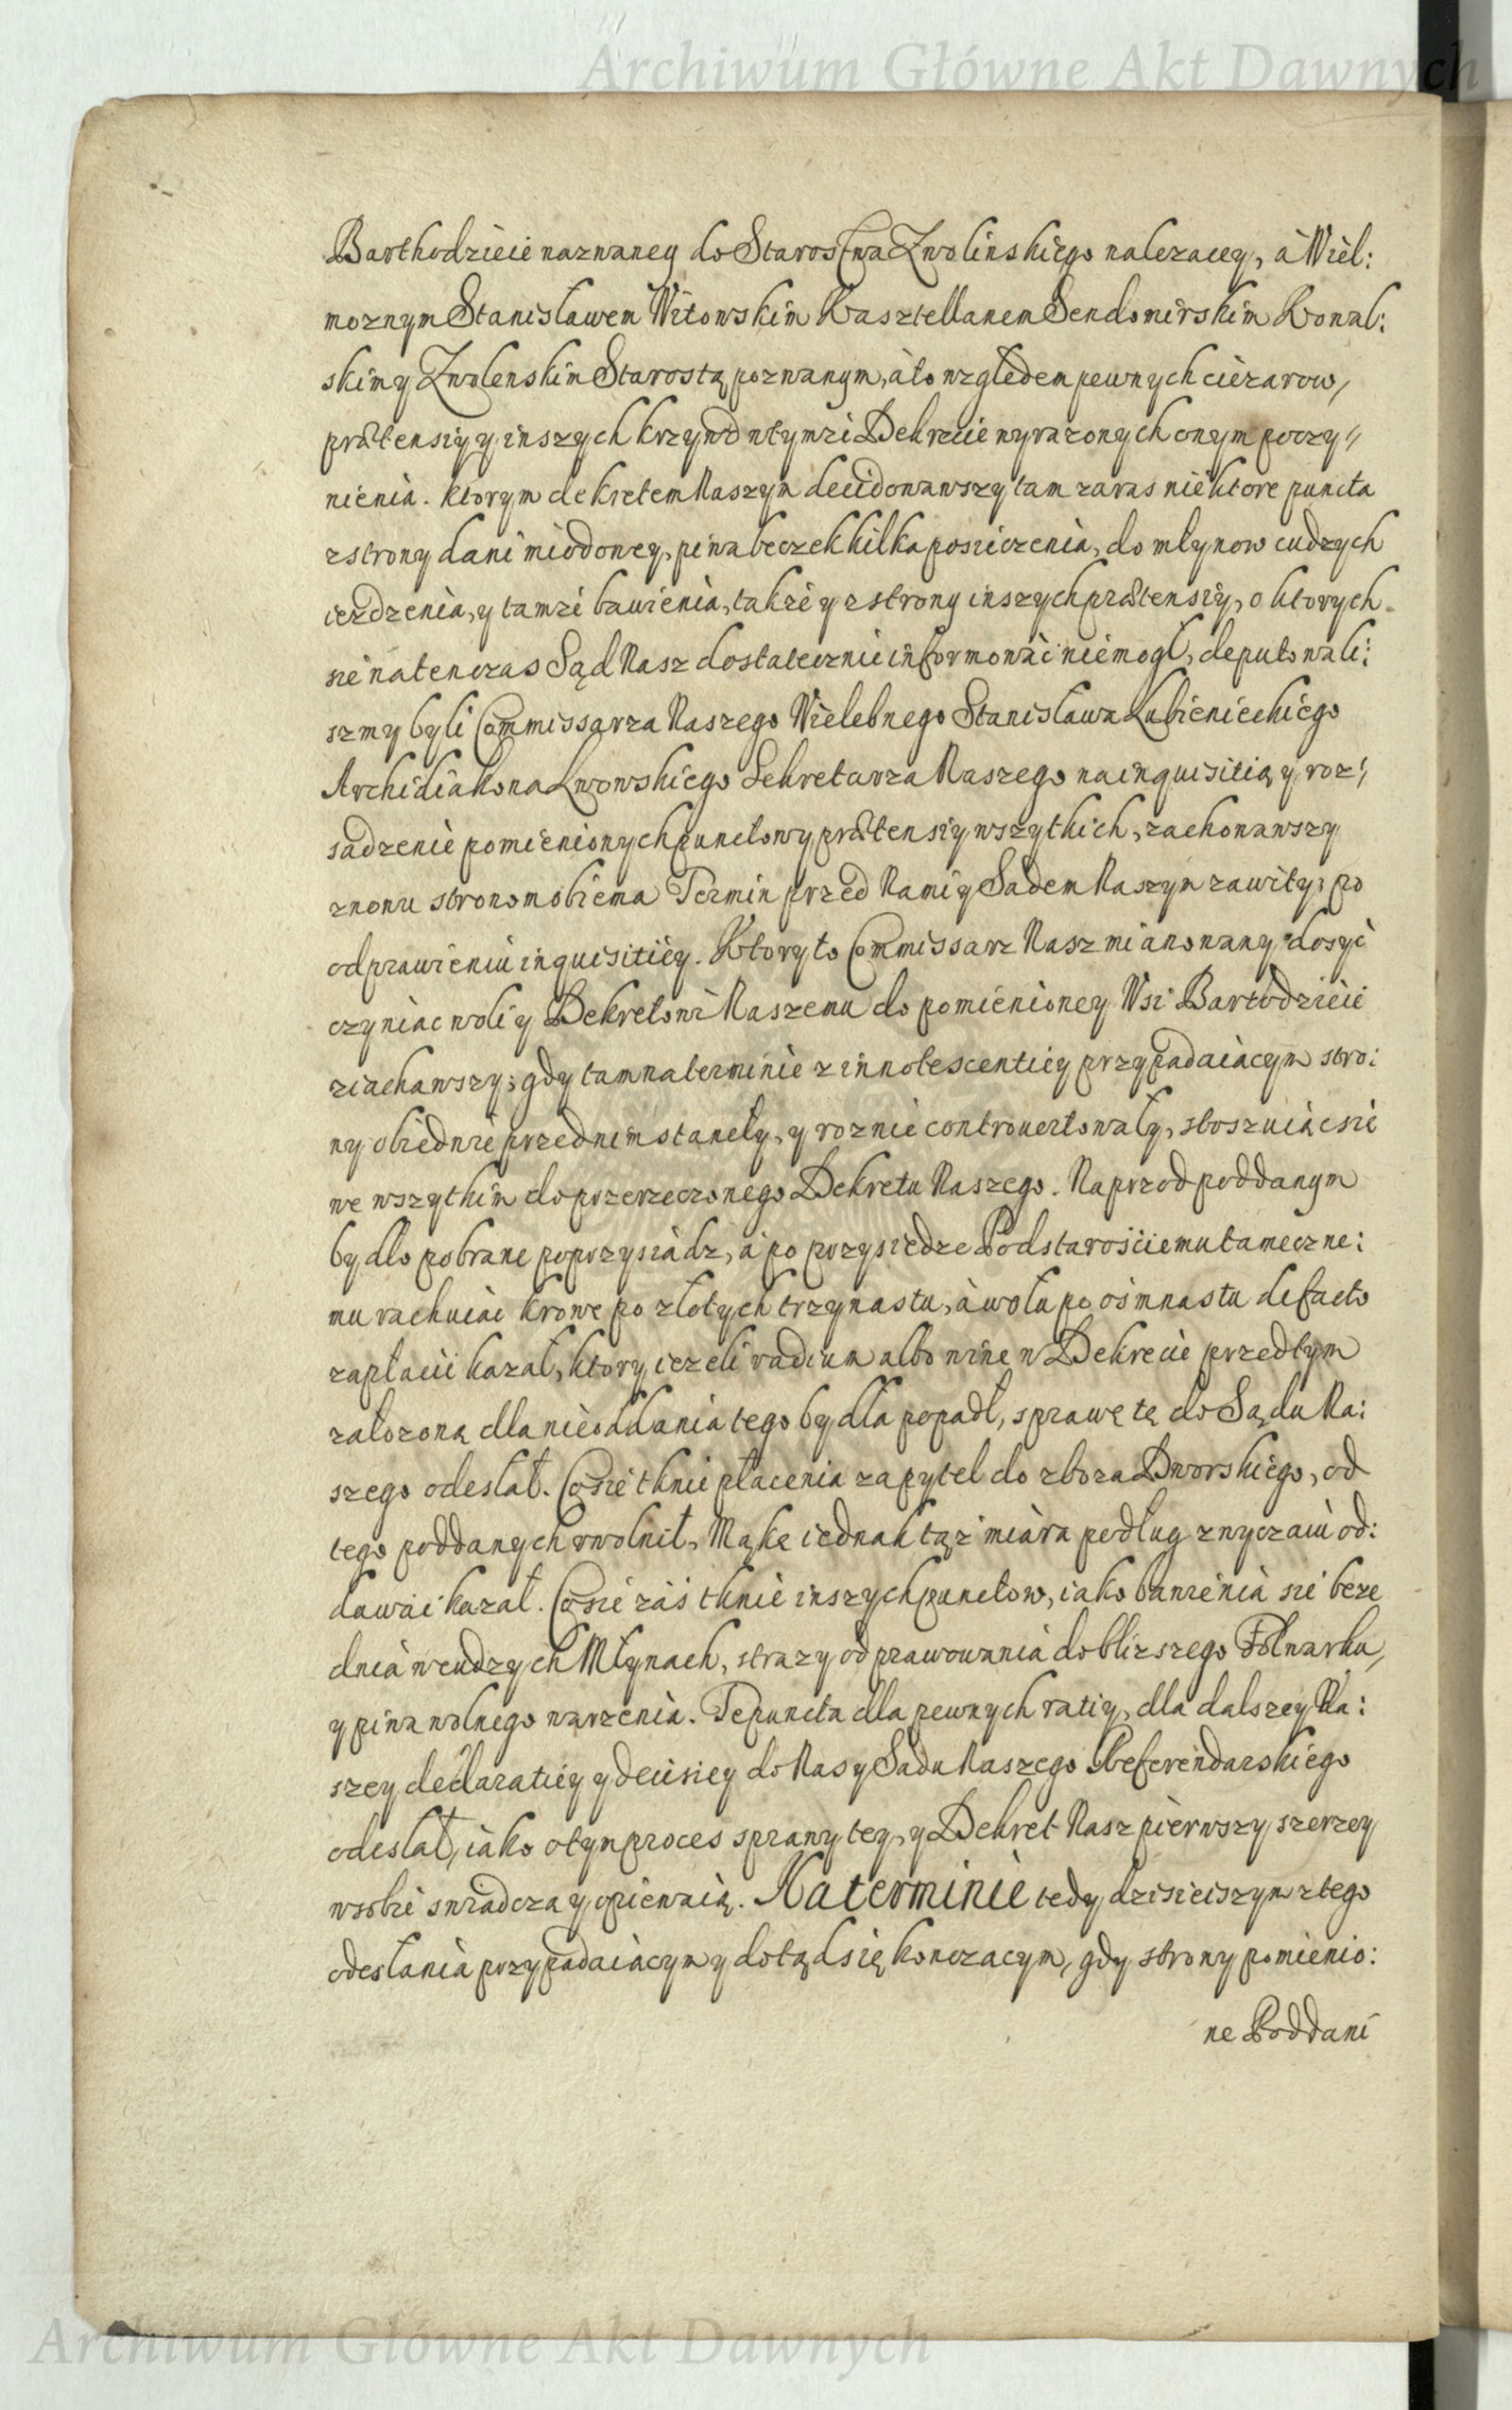 Archiwum Główne Akt Dawnych
Barthodzieie nazwaney do Starostwa Zwolinskiego nalezacey, à Wiel:
moznym Stanisławem Witowskim Kasztellanem Sendomirskim Kowal:
skim y Zwolenskim Starostą pozwanym, à to względem pewnych cięzarow,
prætensiy y inszych krzywd w tymze Dekrecie wyrazonych onym poczy//
nienia. Ktorym dekretem Naszym decidowawszy tam zaras niektore puncta
z strony dani miodowey, piwa beczek kilka posieczenia, do młynow cudzych
iezdzenia, y tamze bawienia, takze y z strony inszych prætensiy, o ktorych
sie natenczas Sąd Nasz dostatecznie informowac nie mogł, deputowali:
szmy byli Commissarza Naszego Wielebnego Stanisława Lubienieckiego
Archidiakona Lwowskiego Sekretarza Naszego na inquisitią y roz:
sadzenie pomienionych punctow y prætensiy wszytkich, zachowawszy
znowu stronom obiema Termin przed Nami y Sadem Naszym zawity, po
odprawieniu inquisitiey. Ktory to Commissarz Nasz mianowany dosyć
czyniac woli y Dekretowi Naszemu do pomienioney Wsi Bartodzieie
ziachawszy; gdy tam na terminie z innotescentiey przypadaiącym stro:
ny obiedwie przed nim staneły, y roznie controvertowały, stosuiąc sie
we wszytkim do przerzeczonego Dekretu Naszego. Naprzod poddanym
bydło pobrane poprzysiądz, á po przysiedze Podstarościemu tameczne:
mu rachuiac krowe po złotych trzynastu, à wołu po ośmnastu de facto
zapłacić kazał, ktory iezeli vadium albo wine w Dekrecie przedtym
załozoną dla nieoddania tego bydła popadł, sprawę tę do Sądu Na:
szego odesłał. Co sie tknie płacenia za pytel do zboza Dworskiego, od
tego poddanych uwolnił, Mąkę iednak tąz miara podług zwyczaiu od:
dawać kazał. Co sie zaś tknie inszych punctow, iako bawienia sie beze
dnia w cudzych Młynach, strazy odprawowania do blizszego Folwarku,
y piwa wolnego warzenia. Te puncta dla pewnych ratiy, dla dalszey Na:
szey declaratiey y decisiey do Nas y Sadu Naszego Referendarskiego
odesłał, iako o tym proces sprawy tey, y Dekret Nasz pierwszy szerzey
w sobie swiadcza y opiewaią. Na terminie tedy dzisieiszym z tego
odesłania przypadaiącym y dotąd się konczacym, gdy strony pomienio:
ne Poddani
Archiwum Główne Akt Dawnych